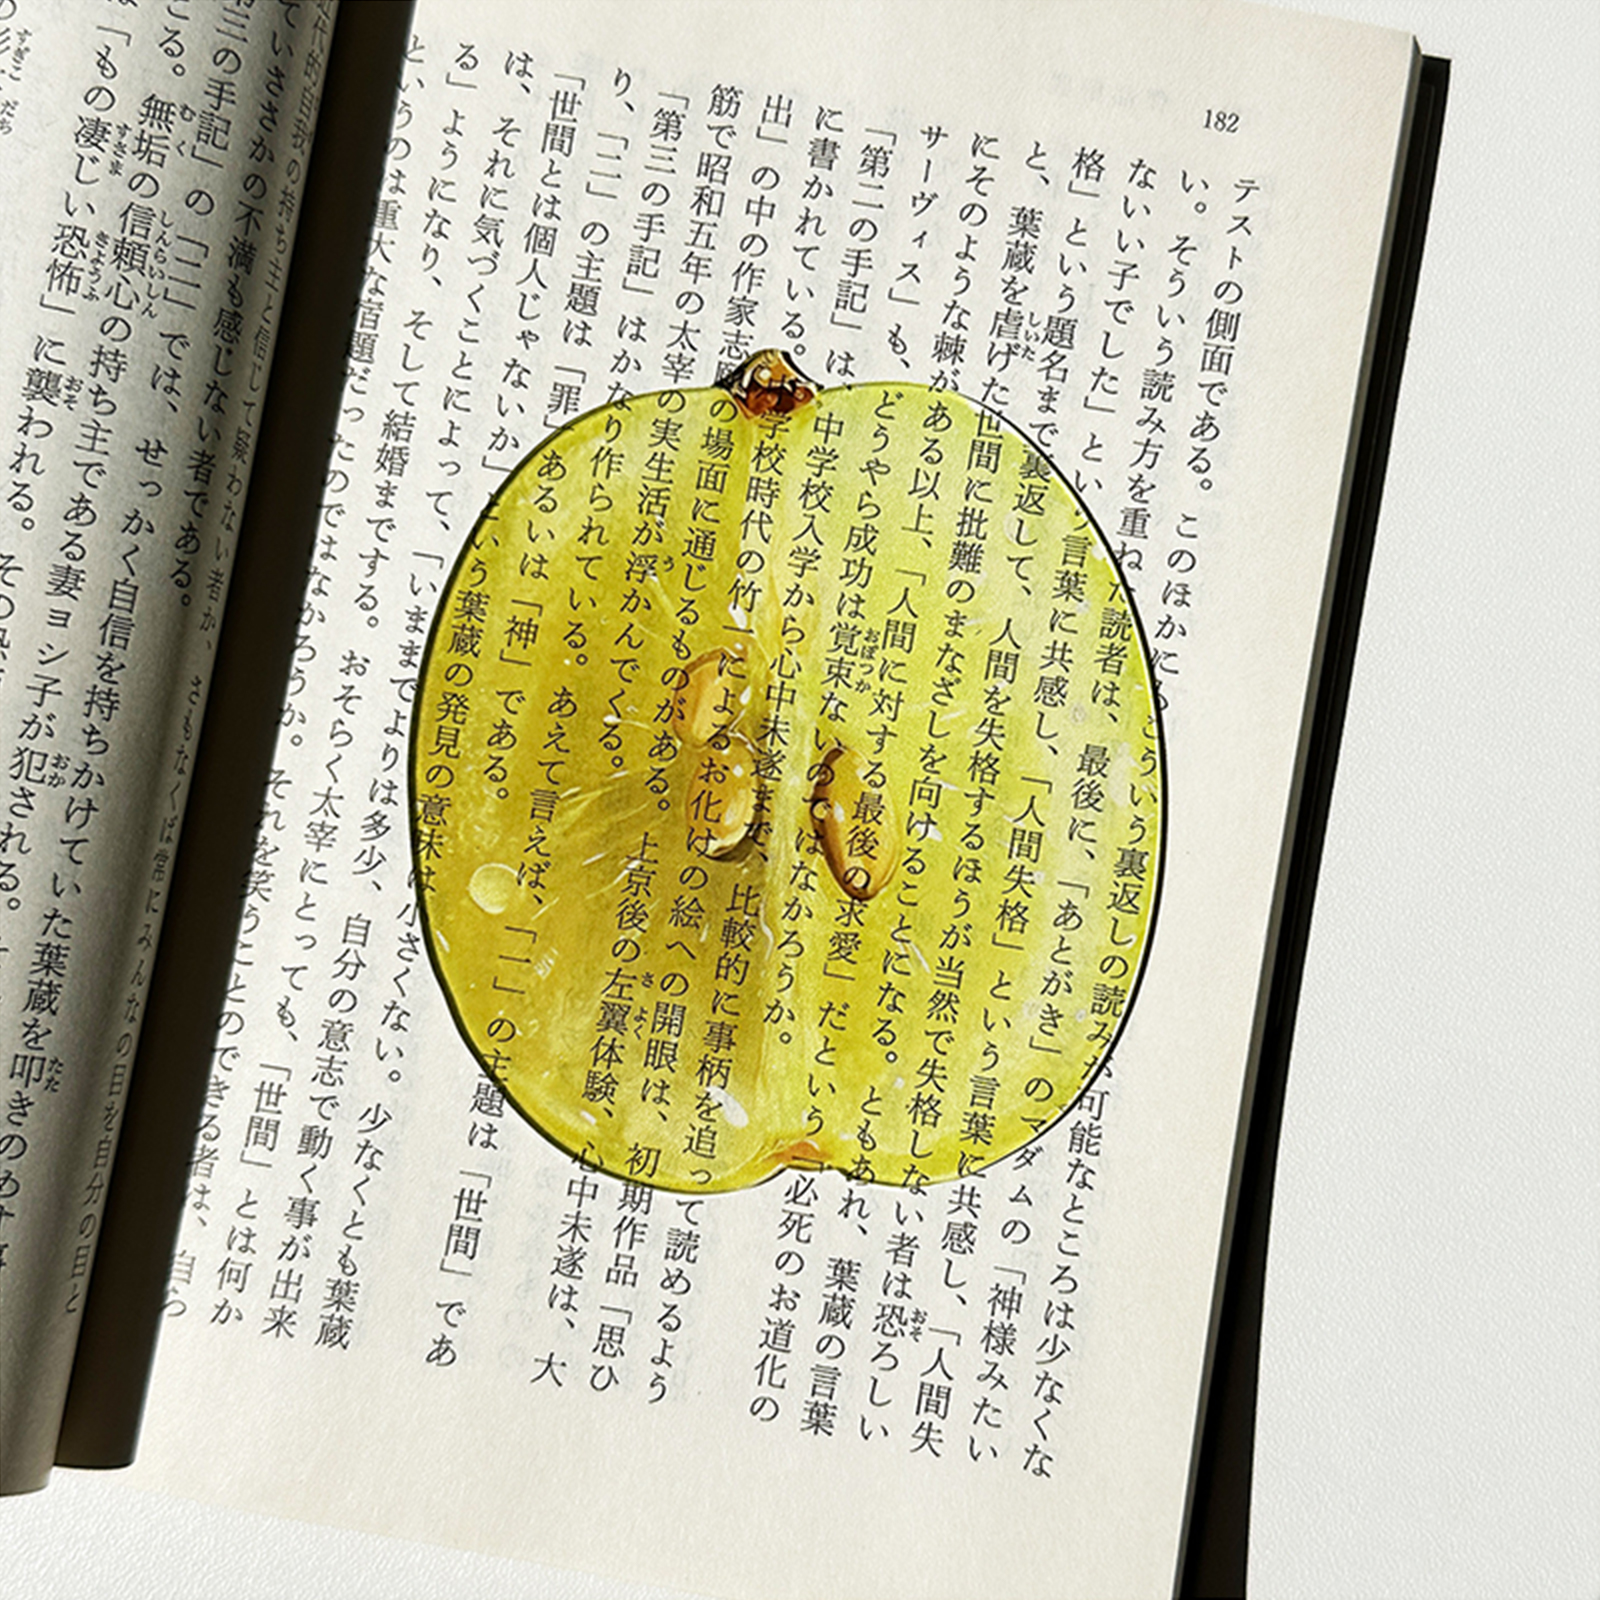 182
テストの側面である。このほかにも、こういう裏返しの読みが可能なところは少なくな
い。そういう読み方を重ねた読者は、最後に、「あとがき」のマダムの「神様みたい
ないい子でした」という言葉に共感し、「人間失格」という言葉に共感し、「人間失
格」という題名まで裏返して、人間を失格するほうが当然で失格しない者は恐ろしい
と、葉蔵を虐げた世間に批難のまなざしを向けることになる。ともあれ、葉蔵の言葉
にそのような棘がある以上、「人間に対する最後の求愛」だという「必死のお道化の
サーヴィス」も、どうやら成功は覚束ないのではなかろうか。
「第二の手記」は、中学校入学から心中未遂まで、比較的に事柄を追って読めるよう
に書かれている。中学校時代の竹一によるお化けの絵への開眼は、初期作品「思ひ
出」の中の作家志願の場面に通じるものがある。上京後の左翼体験、心中未遂は、大
筋で昭和五年の太宰の実生活が浮かんでくる。
「第三の手記」はかなり作られている。あえて言えば、「一」の主題は「世間」であ
り、「二」の主題は「罪」あるいは「神」である。
「世間とは個人じゃないか」という葉蔵の発見の意味は小さくない。少なくとも葉蔵
は、それに気づくことによって、「いままでよりは多少、自分の意志で動く事が出来
る」ようになり、そして結婚までする。おそらく太宰にとっても、「世間」とは何か
というのは重大な宿題だったのではなかろうか。それを笑うことのできる者は、自ら
代的自我の持ち主と信じて疑わない者か、さもなくば常にみんなの目を自分の目と
ていささかの不満も感じない者である。
第三の手記」の「二」では、せっかく自信を持ちかけていた葉蔵を叩きのめす
こる。無垢の信頼心の持ち主である妻ヨシ子が犯される。
は「もの凄じい恐怖」に襲われる。その